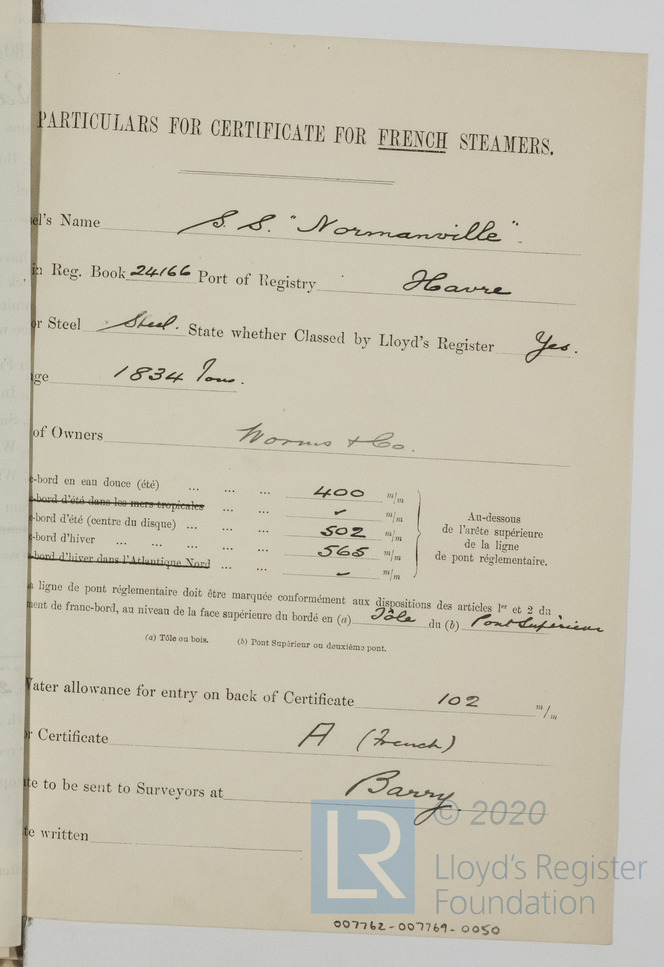 PARTICULARS FOR CERTIFICATE FOR FRENCH STEAMERS.
el's Name S.S. "Normanville".
in Reg. Book 24166 Port of Registry Havre
or Steel Steel. State whether Classed by Lloyd's Register Yes.
ge 1834 Tons.
of Owners Worms & Co.
-bord en eau douce (été) ... ... ... 400 m/m
-bord d'été dans les mers tropicales ... ... ✓ m/m
-bord d'été (centre du disque) ... ... ... 502 m/m
-bord d'hiver ... ... ... ... ... 565 m/m
-bord d'hiver dans l'Atlantique Nord ... ... ✓ m/m
Au-dessous
de l'arête supérieure
de la ligne
de pont réglementaire.
a ligne de pont réglementaire doit être marquée conformément aux dispositions des articles 1er et 2 du
ment de franc-bord, au niveau de la face supérieure du bordé en (a) Tôle du (b) Pont Supérieur
(a) Tôle ou bois. (b) Pont Supérieur ou deuxième pont.
Water allowance for entry on back of Certificate 102 m/m
r Certificate A (French)
te to be sent to Surveyors at Barry.
te written
LR
© 2020
Lloyd's Register
Foundation
007762-007769-0050